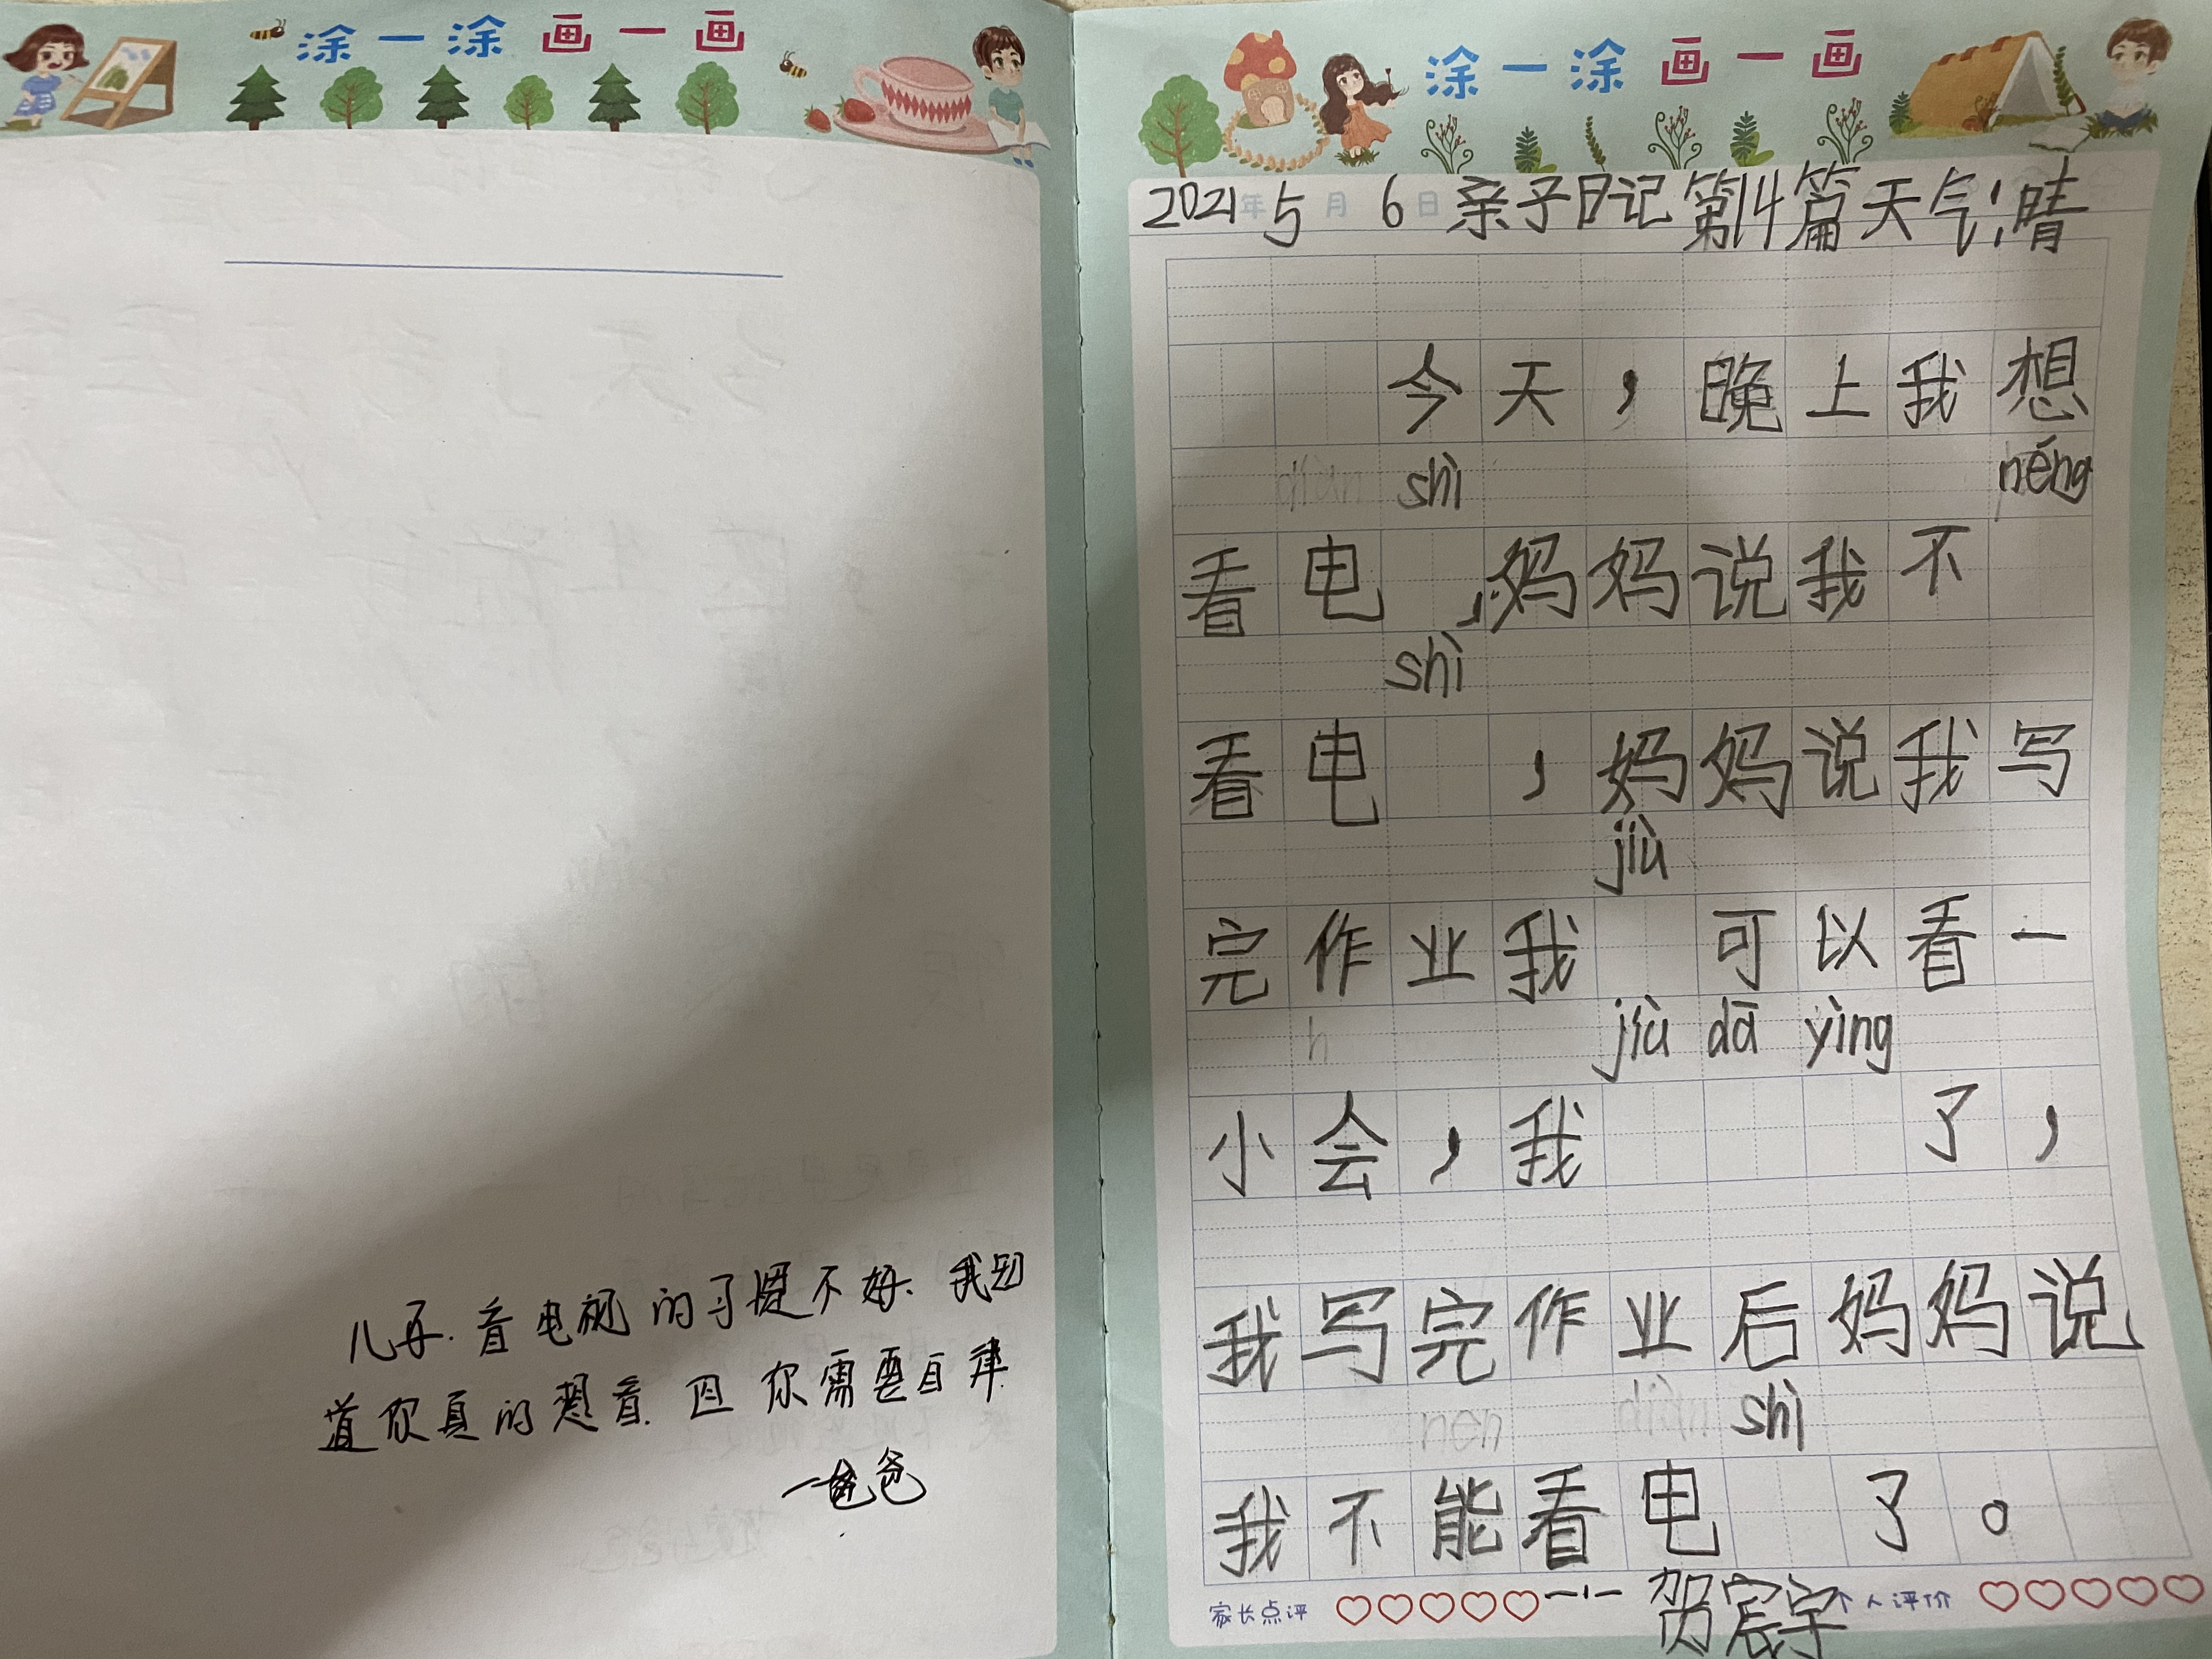 涂一涂画一画
儿子.看电视的习惯不好.我知
道你真的想看.但你需要自律.
一爸爸
涂一涂画一画
2021年5月6日亲子日记第14篇天气:晴
今天,晚上我想
shì néng
看电 ,妈妈说我不
shì
看电 ,妈妈说我写
jiù
完作业我 可以看一
jiù dā yìng
小会,我 了,
我写完作业后妈妈说
shì
我不能看电 了。
家长点评 一1一贺宸宇 个人评价